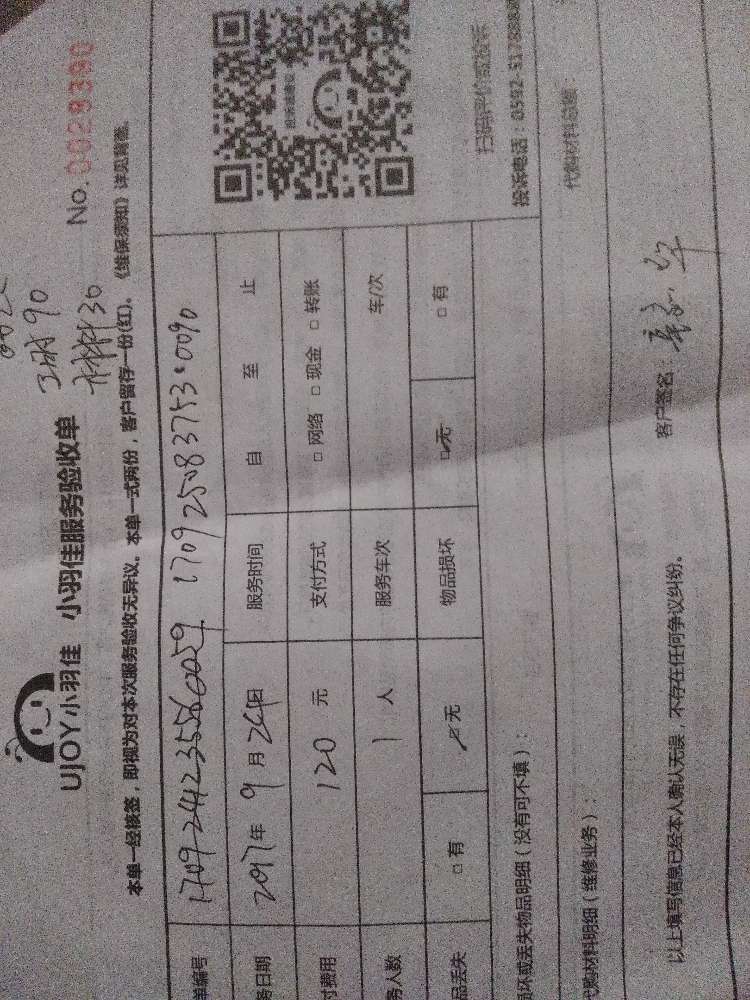 工时90
材料30
UJOY小羽佳 小羽佳服务验收单 No.0028390
本单一经核签，即视为对本次服务验收无异议。本单一式两份，客户留存一份(红)。《维保须知》详见背面。
单编号 1709242355560059 170925083753.0090
务日期 2017年9月24日 服务时间 自 至 止
付费用 120 元 支付方式 □ 网络 □ 现金 □ 转账
务人数 1 人 服务车次 车/次
品丢失 □ 有 □无 物品损坏 □无 □ 有
扫码评价或投诉
投诉电话：0592-3178888
损坏或丢失物品明细（没有可不填）：
代购材料明细（维修业务）：
代购材料总额：
以上填写信息已经本人确认无误，不存在任何争议纠纷。
客户签名：